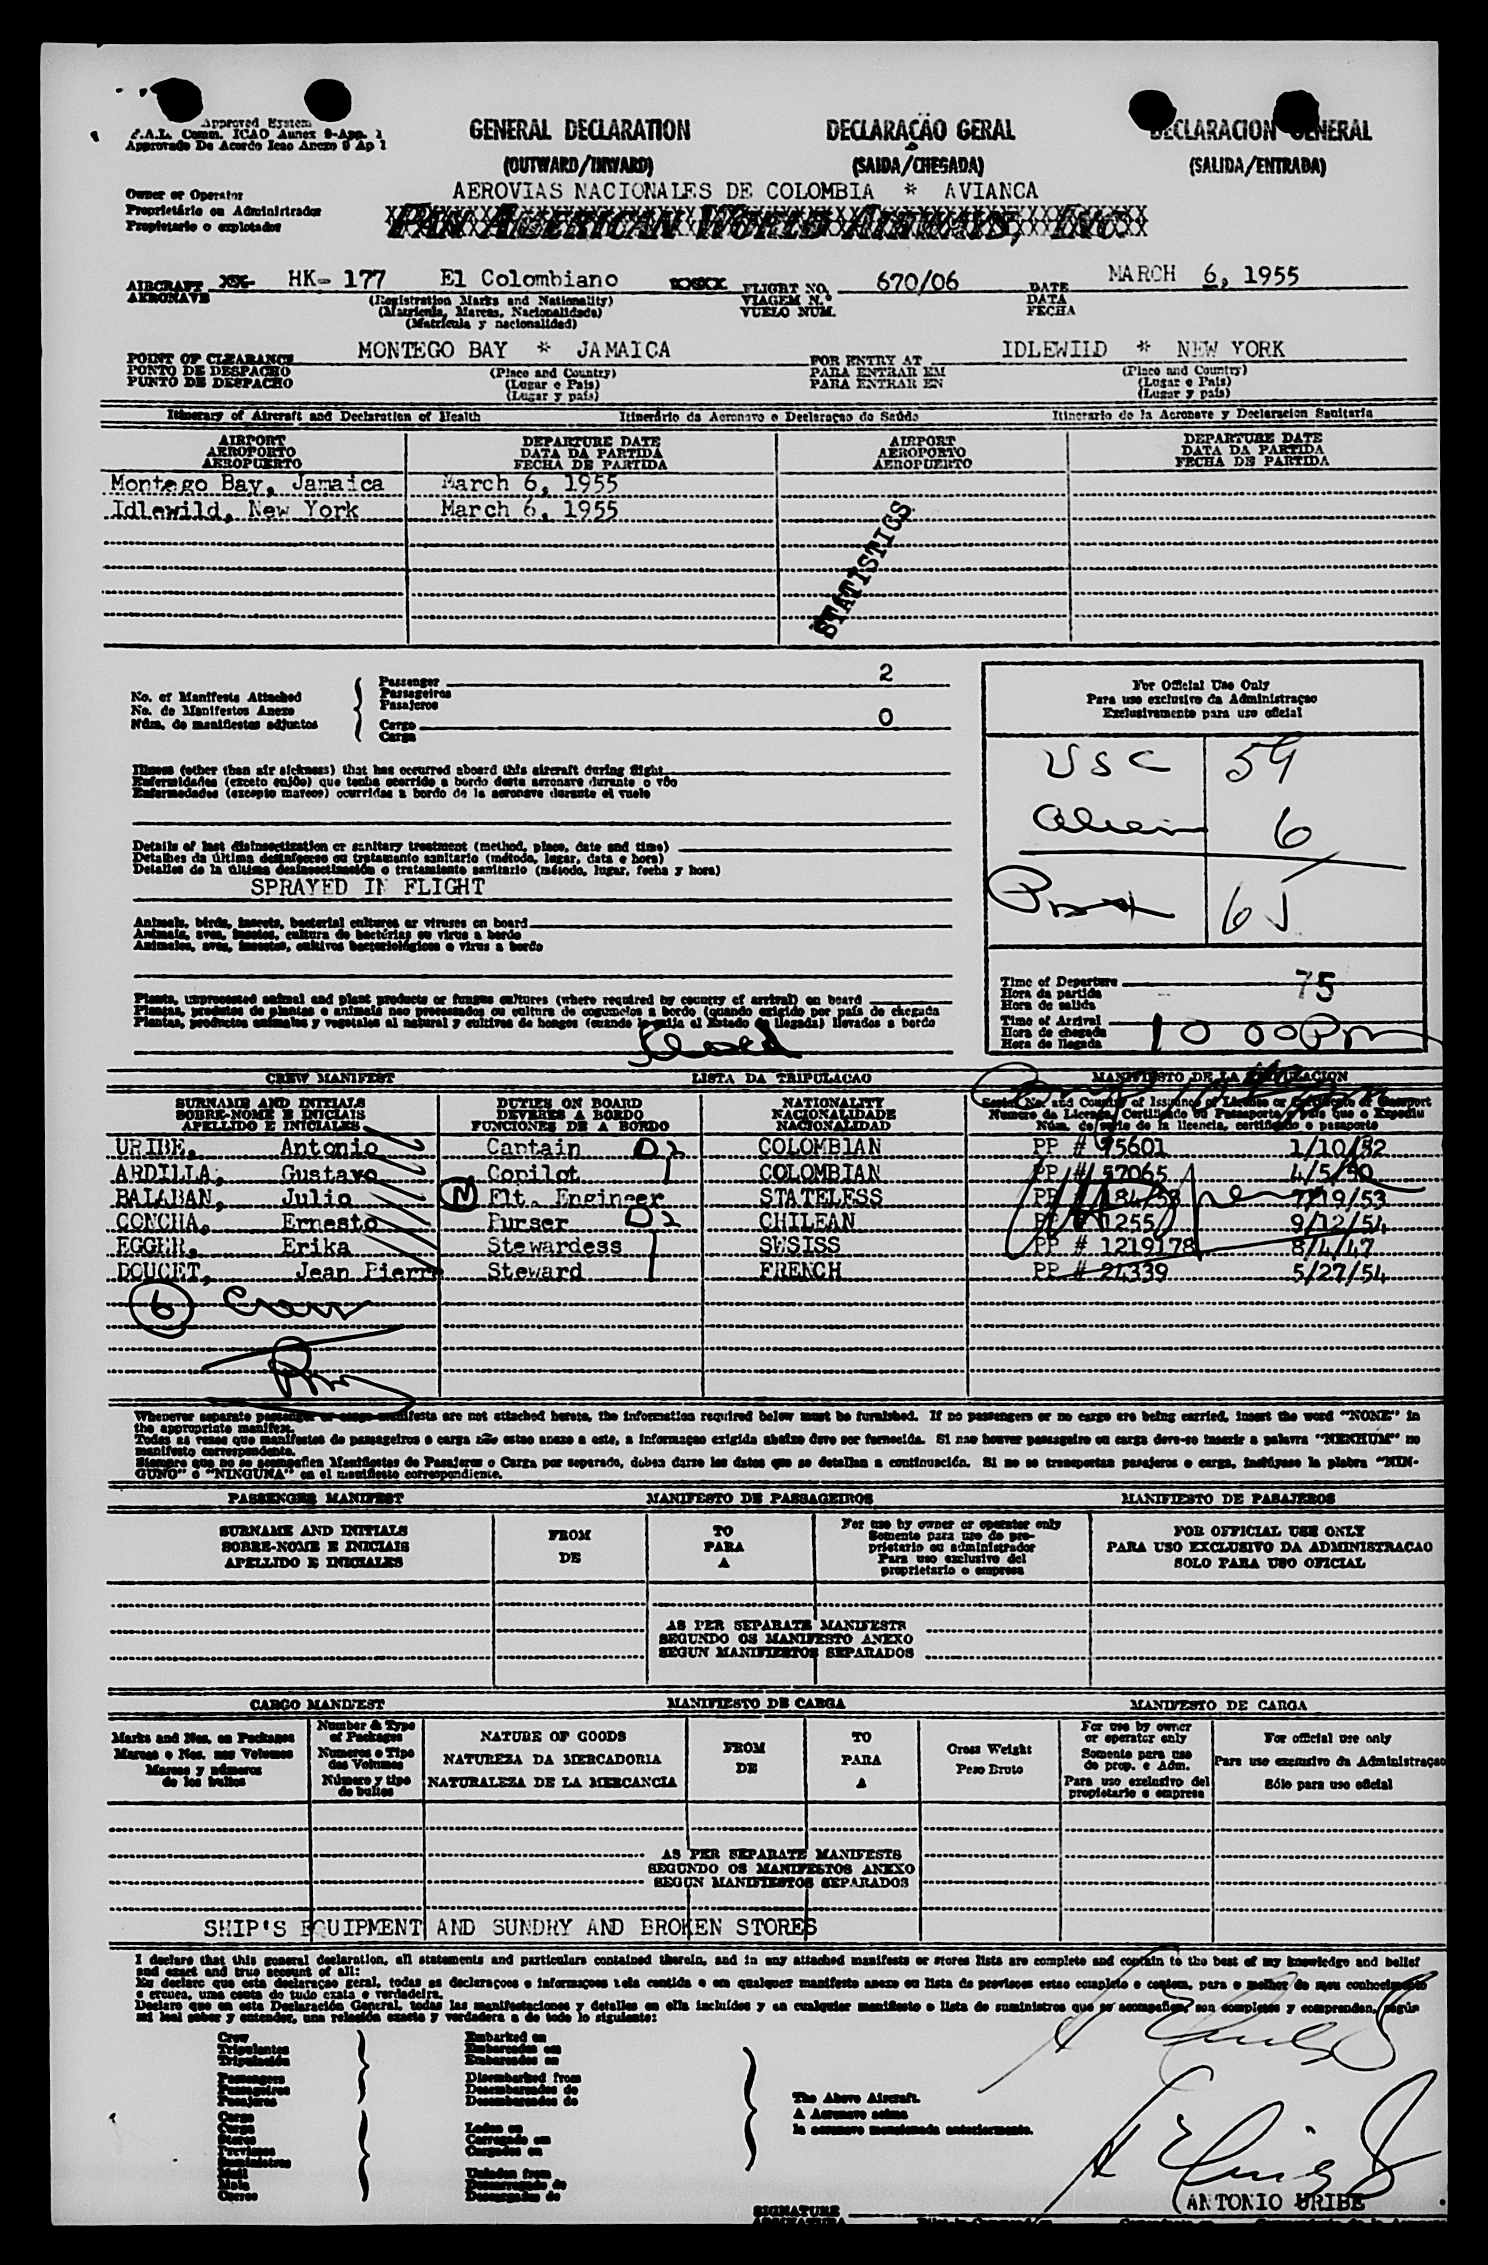 Approved System
F.A.L. Comm. ICAO Annex 9-App. 1
Approvado De Acordo Icao Anexo 9 Ap 1
GENERAL DECLARATION
(OUTWARD/INWARD)
DECLARAÇÃO GERAL
(SAIDA/CHEGADA)
DECLARACION GENERAL
(SALIDA/ENTRADA)
Owner or Operator
Proprietário ou Administrador
Propietario o explotador
AEROVIAS NACIONALES DE COLOMBIA * AVIANCA
PAN AMERICAN WORLD AIRWAYS, INC.
AIRCRAFT
AERONAVE
HK- 177 El Colombiano
(Registration Marks and Nationality)
(Matricula, Marcas, Nacionalidade)
(Matrícula y nacionalidad)
FLIGHT NO.
VIAGEM N.º
VUELO NUM.
670/06
DATE
DATA
FECHA
MARCH 6, 1955
POINT OF CLEARANCE
PONTO DE DESPACHO
PUNTO DE DESPACHO
MONTEGO BAY * JAMAICA
(Place and Country)
(Lugar e País)
(Lugar y país)
FOR ENTRY AT
PARA ENTRAR EM
PARA ENTRAR EN
IDLEWILD * NEW YORK
(Place and Country)
(Lugar e País)
(Lugar y país)
Itinerary of Aircraft and Declaration of Health
Itinerário da Aeronave e Declaraçao de Saúde
Itinerario de la Aeronave y Declaracion Sanitaria
AIRPORT
AEROPORTO
AEROPUERTO
DEPARTURE DATE
DATA DA PARTIDA
FECHA DE PARTIDA
AIRPORT
AEROPORTO
AEROPUERTO
DEPARTURE DATE
DATA DA PARTIDA
FECHA DE PARTIDA
Montego Bay, Jamaica March 6, 1955
Idlewild, New York March 6, 1955
STATISTICS
No. of Manifests Attached
No. de Manifestos Anexo
Núm. de manifiestos adjuntos
Passenger 2
Passageiros
Pasajeros
Cargo 0
Carga
For Official Use Only
Para uso exclusivo da Administraçao
Exclusivamente para uso oficial
USC 59
Alien 6
65
Illness (other than air sickness) that has occurred aboard this aircraft during flight
Enfermidades (exceto enjôo) que tenha ocorrido a bordo desta aeronave durante o vôo
Enfermedades (excepto mareos) ocurridas a bordo de la aeronave durante el vuelo
Details of last disinsectization or sanitary treatment (method, place, date and time)
Detalhes da última desinfeccao ou tratamento sanitario (método, lugar, data e hora)
Detalles de la última desinsectización o tratamiento sanitario (método, lugar, fecha y hora)
SPRAYED IN FLIGHT
Animals, birds, insects, bacterial cultures or viruses on board
Animais, aves, insetos, cultura de bactérias ou virus a bordo
Animales, aves, insectos, cultivos bacteriológicos o virus a bordo
Plants, unprocessed animal and plant products or fungus cultures (where required by country of arrival) on board
Plantas, produtos de plantas e animais nao processados ou cultura de cogumelos a bordo (quando exigido por país de chegada
Plantas, productos animales y vegetales al natural y cultivos de hongos (cuando lo exija el Estado de llegada) llevados a bordo
Time of Departure
Hora da partida
Hora de salida
75
Time of Arrival
Hora de chegada
Hora de llegada
10 00 Pm
CREW MANIFEST
LISTA DA TRIPULACAO
MANIFIESTO DE LA TRIPULACION
SURNAME AND INITIALS
SOBRE-NOME E INICIAIS
APELLIDO E INICIALES
DUTIES ON BOARD
DEVERES A BORDO
FUNCIONES DE A BORDO
NATIONALITY
NACIONALIDADE
NACIONALIDAD
Serial No. and Country of Issuance of License or Certificate or Passport
Numero da Licença, Certificado ou Passaporte e País que o Expediu
Núm. de serie de la licencia, certificado o pasaporte
URIBE, Antonio Captain D2 COLOMBIAN PP # 95601 1/10/52
ARDILLA, Gustavo Copilot COLOMBIAN PP # 57065 4/5/50
BALABAN, Julio N Flt. Engineer STATELESS PP # 7/19/53
CONCHA, Ernesto Purser D2 CHILEAN PP # 1255 9/12/54
EGGER, Erika Stewardess SWSISS PP # 1219178 8/4/47
DOUCET, Jean Pierre Steward FRENCH PP # 24339 5/27/54
6 Crew
Whenever separate passenger or cargo manifests are not attached hereto, the information required below must be furnished. If no passengers or no cargo are being carried, insert the word "NONE" in
the appropriate manifest.
Todas as vezes que manifestos de passageiros e carga não estao anexo a este, a informaçao exigida abaixo deve ser fornecida. Si nao houver passageiro ou carga deve-se inserir a palavra "NENHUM" no
manifesto correspondente.
Siempre que no se acompañen Manifiestos de Pasajeros o Carga, por separado, deben darse los datos que se detallan a continuación. Si no se transportan pasajeros o carga, inclúyase la plabra "NIN-
GUNO" o "NINGUNA" en el manifiesto correspondiente.
PASSENGER MANIFEST
MANIFESTO DE PASSAGEIROS
MANIFIESTO DE PASAJEROS
SURNAME AND INITIALS
SOBRE-NOME E INICIAIS
APELLIDO E INICIALES
FROM
DE
TO
PARA
A
For use by owner or operator only
Somente para uso de pro-
prietario ou administrador
Para uso exclusivo del
proprietario o empresa
FOR OFFICIAL USE ONLY
PARA USO EXCLUSIVO DA ADMINISTRACAO
SOLO PARA USO OFICIAL
AS PER SEPARATE MANIFESTS
SEGUNDO OS MANIFESTO ANEXO
SEGUN MANIFIESTOS SEPARADOS
CARGO MANIFEST
MANIFIESTO DE CARGA
MANIFESTO DE CARGA
Marks and Nos. on Packages
Marcas e Nos. nos Volumes
Marcas y números
de los bultos
Number & Type
of Packages
Numeros e Tipo
des Volumes
Número y tipo
de bultos
NATURE OF GOODS
NATUREZA DA MERCADORIA
NATURALEZA DE LA MERCANCIA
FROM
DE
TO
PARA
A
Gross Weight
Peso Bruto
For use by owner
or operator only
Somente para uso
de prop. e Adm.
Para uso exclusivo del
propietario o empresa
For official use only
Para uso exclusivo da Administraçao
Sólo para uso oficial
AS PER SEPARATE MANIFESTS
SEGUNDO OS MANIFESTOS ANEXO
SEGUN MANIFIESTOS SEPARADOS
SHIP'S EQUIPMENT AND SUNDRY AND BROKEN STORES
I declare that this general declaration, all statements and particulars contained therein, and in any attached manifests or stores lists are complete and contain to the best of my knowledge and belief
and exact and true account of all:
Eu declaro que esta declaraçao geral, todas as declaraçoes e informaçoes nela contida e em qualquer manifesto anexo ou lista de provisoes estao completo e contem, para o melhor do meu conhecimento
e crença, uma conta de tudo exata e verdadeira.
Declaro que en esta Declaración General, todas las manifestaciones y detalles en ella incluídos y en cualquier manifiesto o lista de suministros que se acompañen, son completos y comprenden, según
mi leal saber y entender, una relación exacta y verdadera a de todo lo siguiente:
Crew
Tripulantes
Tripulación
Passengers
Passageiros
Pasajeros
Cargo
Carga
Stores
Provisoes
Suministros
Mail
Mala
Correo
Embarked on
Embarcados em
Embarcados en
Disembarked from
Desembarcados de
Desembarcados de
Laden on
Carregado em
Cargados en
Unladen from
Descarregado de
Descargados de
The Above Aircraft.
A Aeronave acima
la aeronave mencionada anteriormente.
SIGNATURE
ANTONIO URIBE